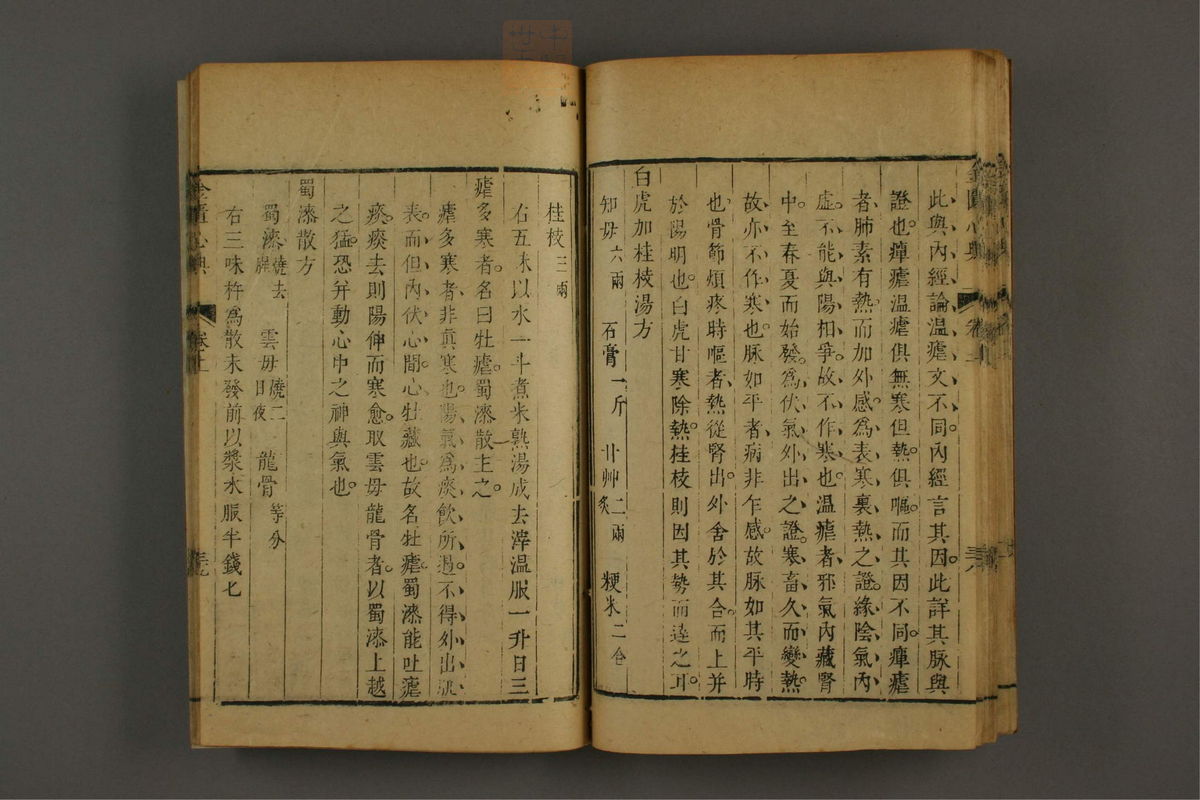 此與內經論温瘧文不同。內經言其因。此詳其脉與
證也。癉瘧温瘧俱無寒但熱。俱嘔。而其因不同。癉瘧
者肺素有熱。而加外感。爲表寒裏熱之證。緣陰氣內
虛。不能與陽相爭。故不作寒也。温瘧者邪氣內藏腎
中。至春夏而始發。爲伏氣外出之證。寒畜久而變熱。
故亦不作寒也。脉如平者。病非乍感。故脉如其平時
也。骨節煩疼時嘔者。熱從腎出。外舍於其合。而上并
於陽明也。白虎甘寒除熱。桂枝則因其勢而達之耳。
白虎加桂枝湯方
知毋六兩 石膏一斤 甘艸二兩炙 粳米二合
桂枝三兩
右五味以水一斗煮米熟湯成去滓温服一升日三
瘧多寒者。名曰牡瘧。蜀漆散主之。
瘧多寒者。非真寒也。陽氣爲痰飲所遏。不得外出肌
表。而但內伏心間。心牡藏也。故名牡瘧。蜀漆能吐瘧
痰。痰去則陽伸而寒愈。取雲毋龍骨者。以蜀漆上越
之猛。恐并動心中之神與氣也。
蜀漆散方
蜀漆燒去腥 雲毋燒二日夜 龍骨等分
右三味杵爲散未發前以漿水服半錢七
金匱心典 卷上